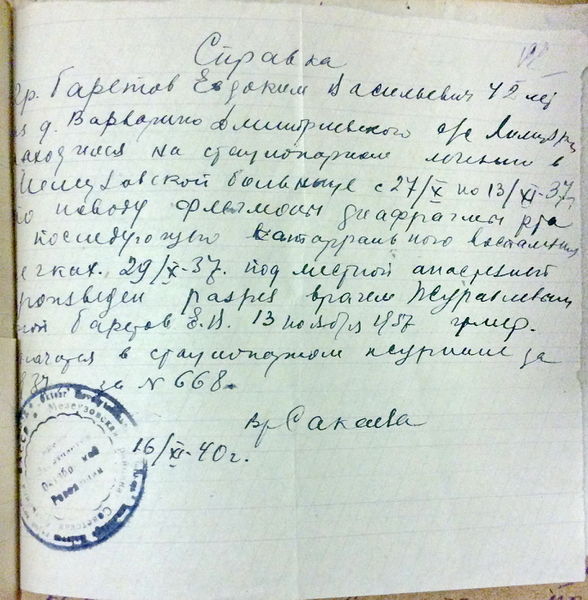 Справка
гр. Баретов Евдоким Васильевич 42 лет
из д. Варварино Дмитриевского с/с
находился на стационарном лечении в
больнице с 27/X по 13/XI-37 г.
по поводу флегмоны диафрагмы рта
последующего катаррального воспаления
легких. 29/X-37. под местной анастезией
произведен разрез врачем Журавлевым
ной Баретов Е.В. 13 ноября 1937 г. умер.
значится в стационарном журнале за
37 за N 668.
Вр Сакаева
16/XI-40 г.
Мелеузовской